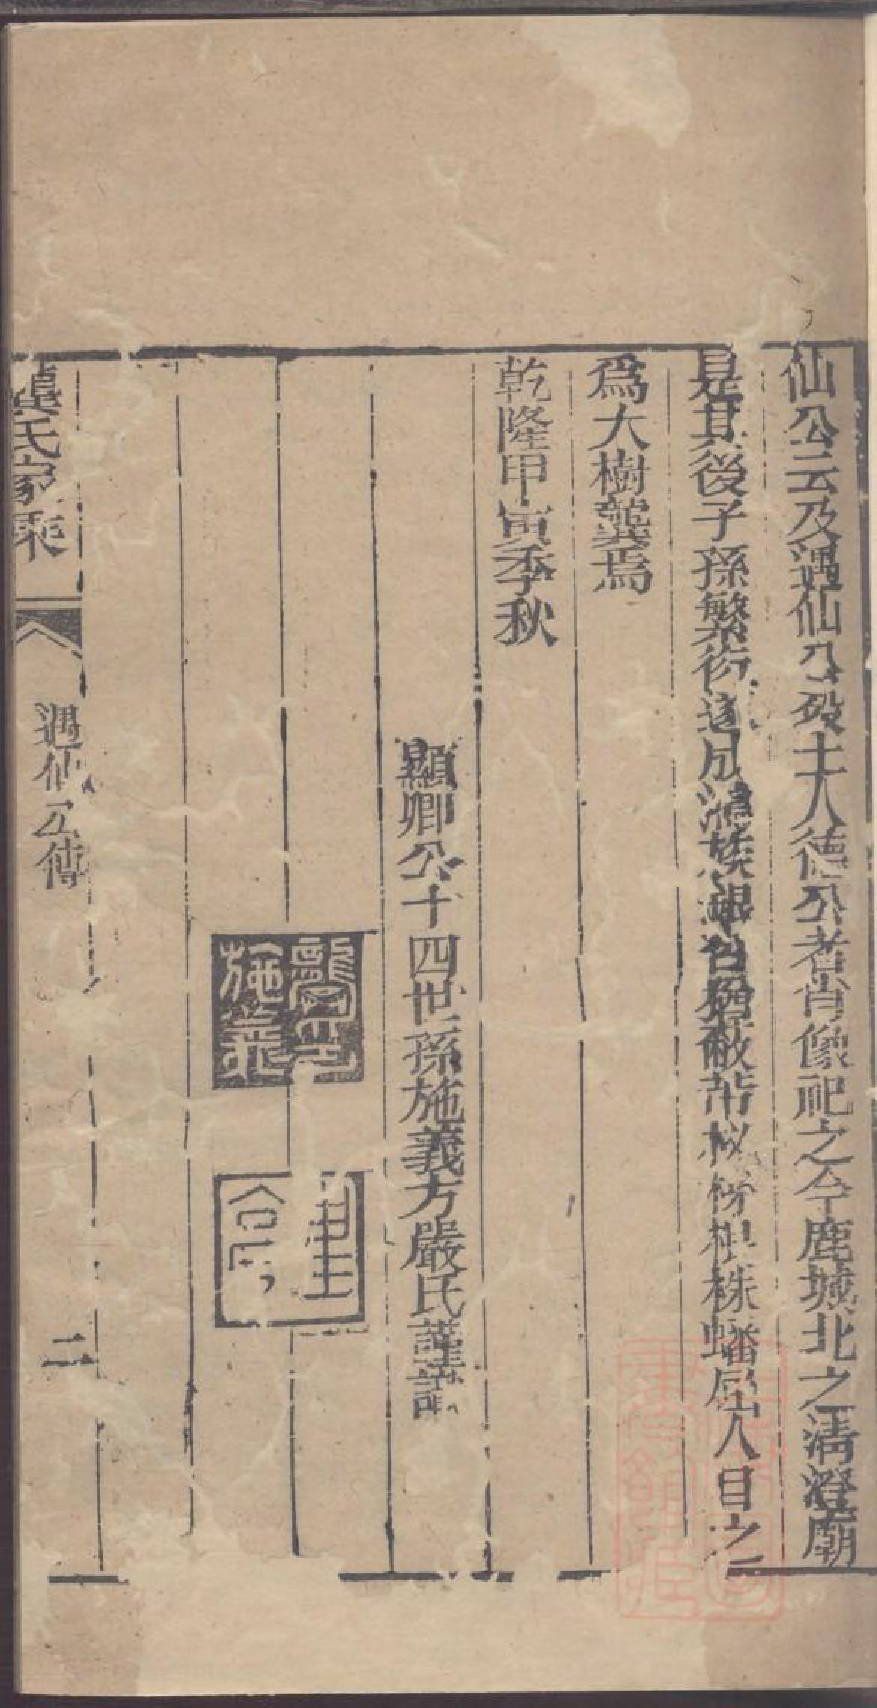 仙公云及遇仙公歿土人德公者肖像祀之今鹿城北之清澄廟
是其後子孫繁衍遂成濱族銀杏移蔽芾枌榆根株蟠屈人目之
爲大樹龔焉
乾隆甲寅季秋
顯卿公十四世孫施義方嚴氏謹識
施義
龔氏家乘
遇仙公傳
二